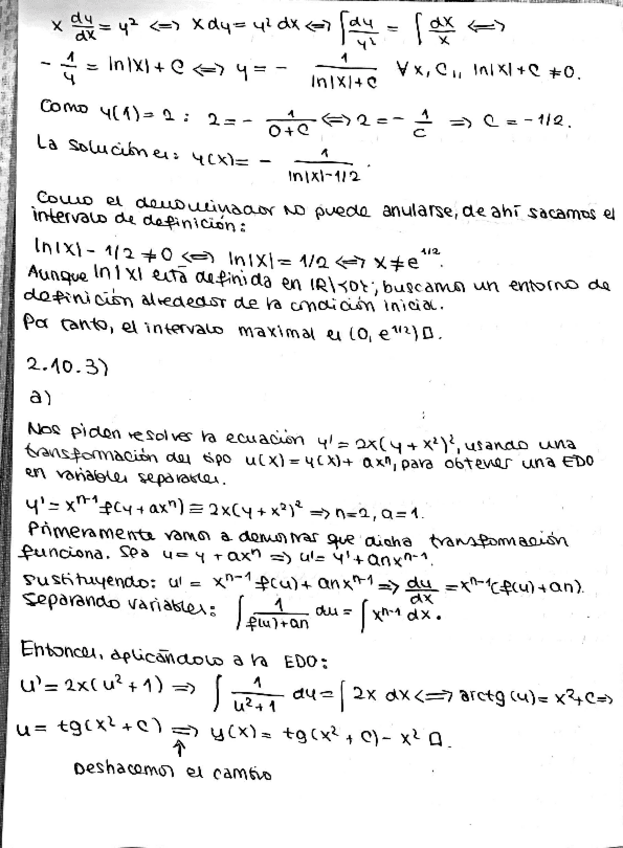 x dy/dx = y² <=> x dy = y² dx <=> ∫ dy/y² = ∫ dx/x <=>
- 1/y = ln|x| + C <=> y = - 1/(ln|x| + C) ∀ x, C ,, ln|x| + C ≠ 0.
Como y(1) = 2 : 2 = - 1/(0+C) <=> 2 = - 1/C => C = -1/2.
La solución es: y(x) = - 1/(ln|x| - 1/2).
Como el denominador no puede anularse, de ahí sacamos el
intervalo de definición:
ln|x| - 1/2 ≠ 0 <=> ln|x| = 1/2 <=> x ≠ e^{1/2}.
Aunque ln|x| está definida en ℝ\{0}, buscamos un entorno de
definición alrededor de la condición inicial.
Por tanto, el intervalo maximal es (0, e^{1/2}) □.
2.10.3)
a)
Nos piden resolver la ecuación y' = 2x(y + x²)², usando una
transformación del tipo u(x) = y(x) + axⁿ, para obtener una EDO
en variables separables.
y' = xⁿ⁻¹ f(y + axⁿ) ≡ 2x(y + x²)² => n=2, a=1.
Primeramente vamos a demostrar que dicha transformación
funciona. Sea u = y + axⁿ => u' = y' + anxⁿ⁻¹.
Sustituyendo: u' = xⁿ⁻¹ f(u) + anxⁿ⁻¹ => du/dx = xⁿ⁻¹(f(u) + an).
Separando variables: ∫ 1/(f(u) + an) du = ∫ xⁿ⁻¹ dx.
Entonces, aplicándolo a la EDO:
u' = 2x(u² + 1) => ∫ 1/(u² + 1) du = ∫ 2x dx <=> arctg(u) = x² + C =>
u = tg(x² + C) => y(x) = tg(x² + C) - x² □.
↑
Deshacemos el cambio